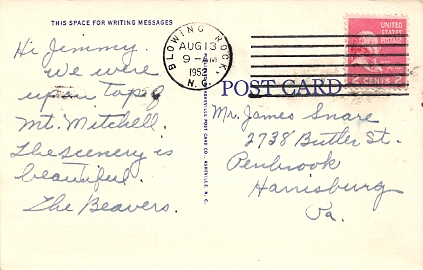 THIS SPACE FOR WRITING MESSAGES
Hi Jimmy.
We were
up on top of
Mt. Mitchell.
The scenery is
beautiful.
The Beavers.
BLOWING ROCK,
AUG 13
9-AM
1952
N.C.
UNITED
STATES
POSTAGE
2 CENTS 2
POST CARD
Mr. James Snare
2738 Butler St.
Penbrook
Harrisburg
Pa.
ASHEVILLE POST CARD CO., ASHEVILLE, N. C.